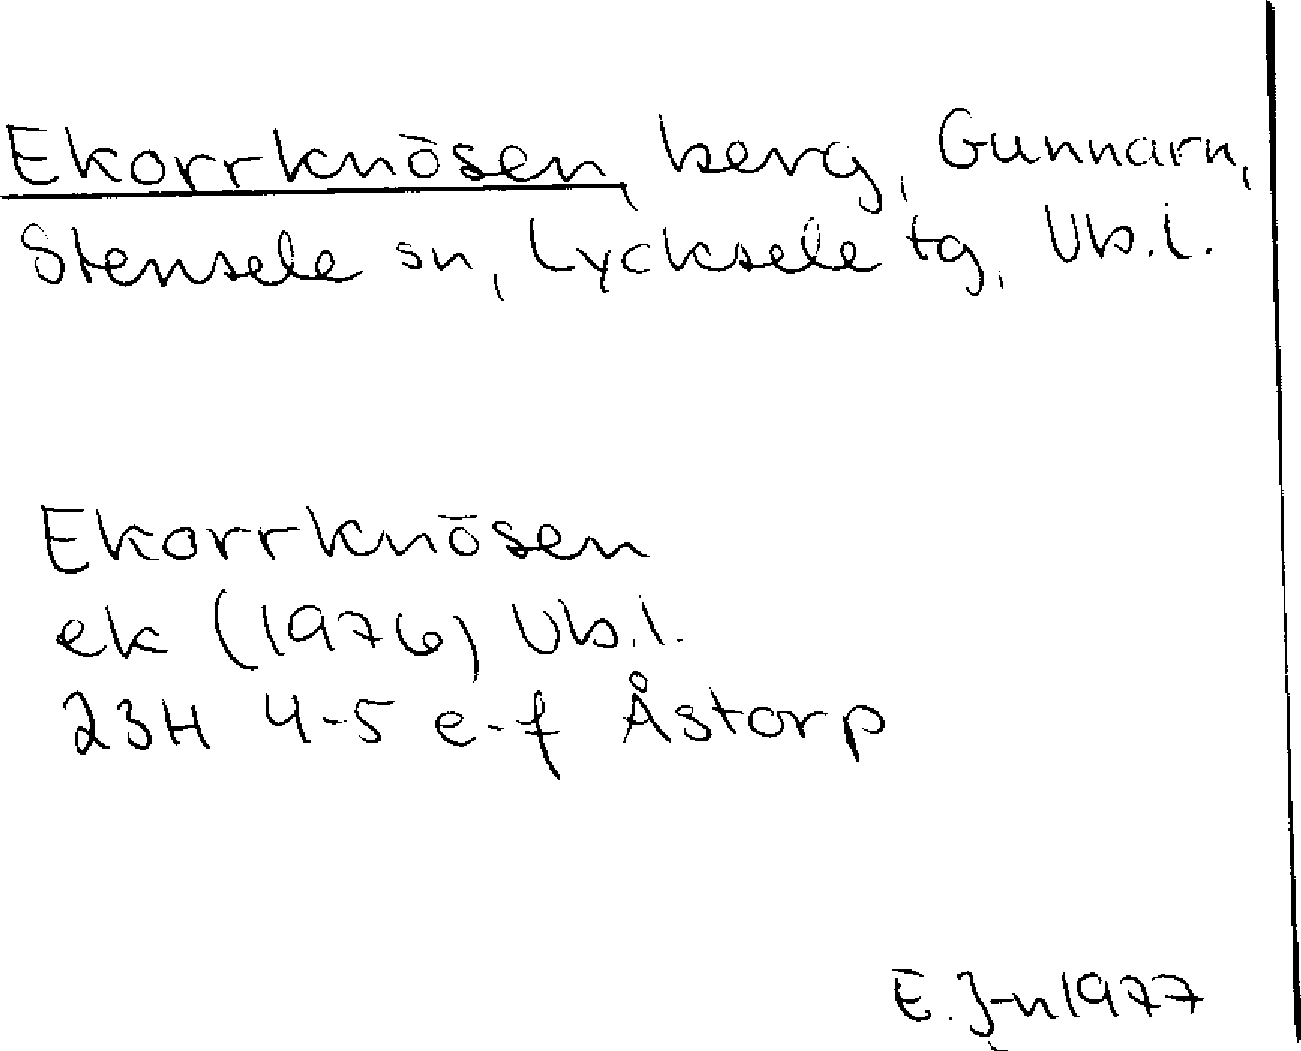 Ekorrknösen, berg, Gunnarn,
Stensele sn, Lycksele tg, Vb.l.
Ekorrknösen
ek (1976) Vb.l.
23H 4-5 e-f Åstorp
E. J-n 1977